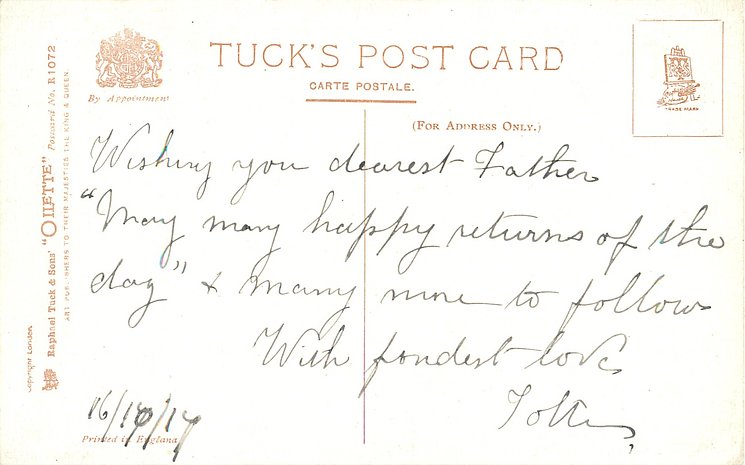 TUCK'S POST CARD
CARTE POSTALE.
By Appointment
(FOR ADDRESS ONLY.)
TRADE MARK
Copyright London
Raphael Tuck & Sons' "OILETTE" Postcard No. R1072
ART PUBLISHERS TO THEIR MAJESTIES THE KING & QUEEN.
Wishing you dearest Father
"May many happy returns of the
day" & many more to follow
With fondest love
Printed in England